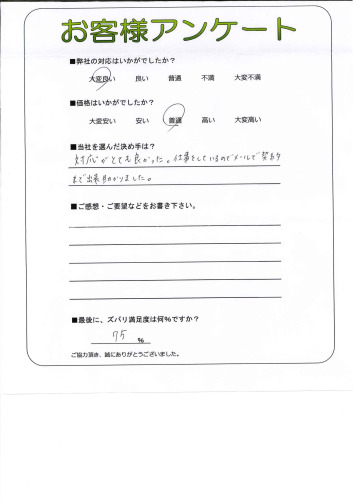 お客様アンケート
■弊社の対応はいかがでしたか?
大変良い 良い 普通 不満 大変不満
■価格はいかがでしたか?
大変安い 安い 普通 高い 大変高い
■当社を選んだ決め手は?
対応がとても良かった。仕事をしているのでメールで契約
まで出来助かりました。
■ご感想・ご要望などをお書き下さい。
■最後に、ズバリ満足度は何%ですか?
75 %
ご協力頂き、誠にありがとうございました。